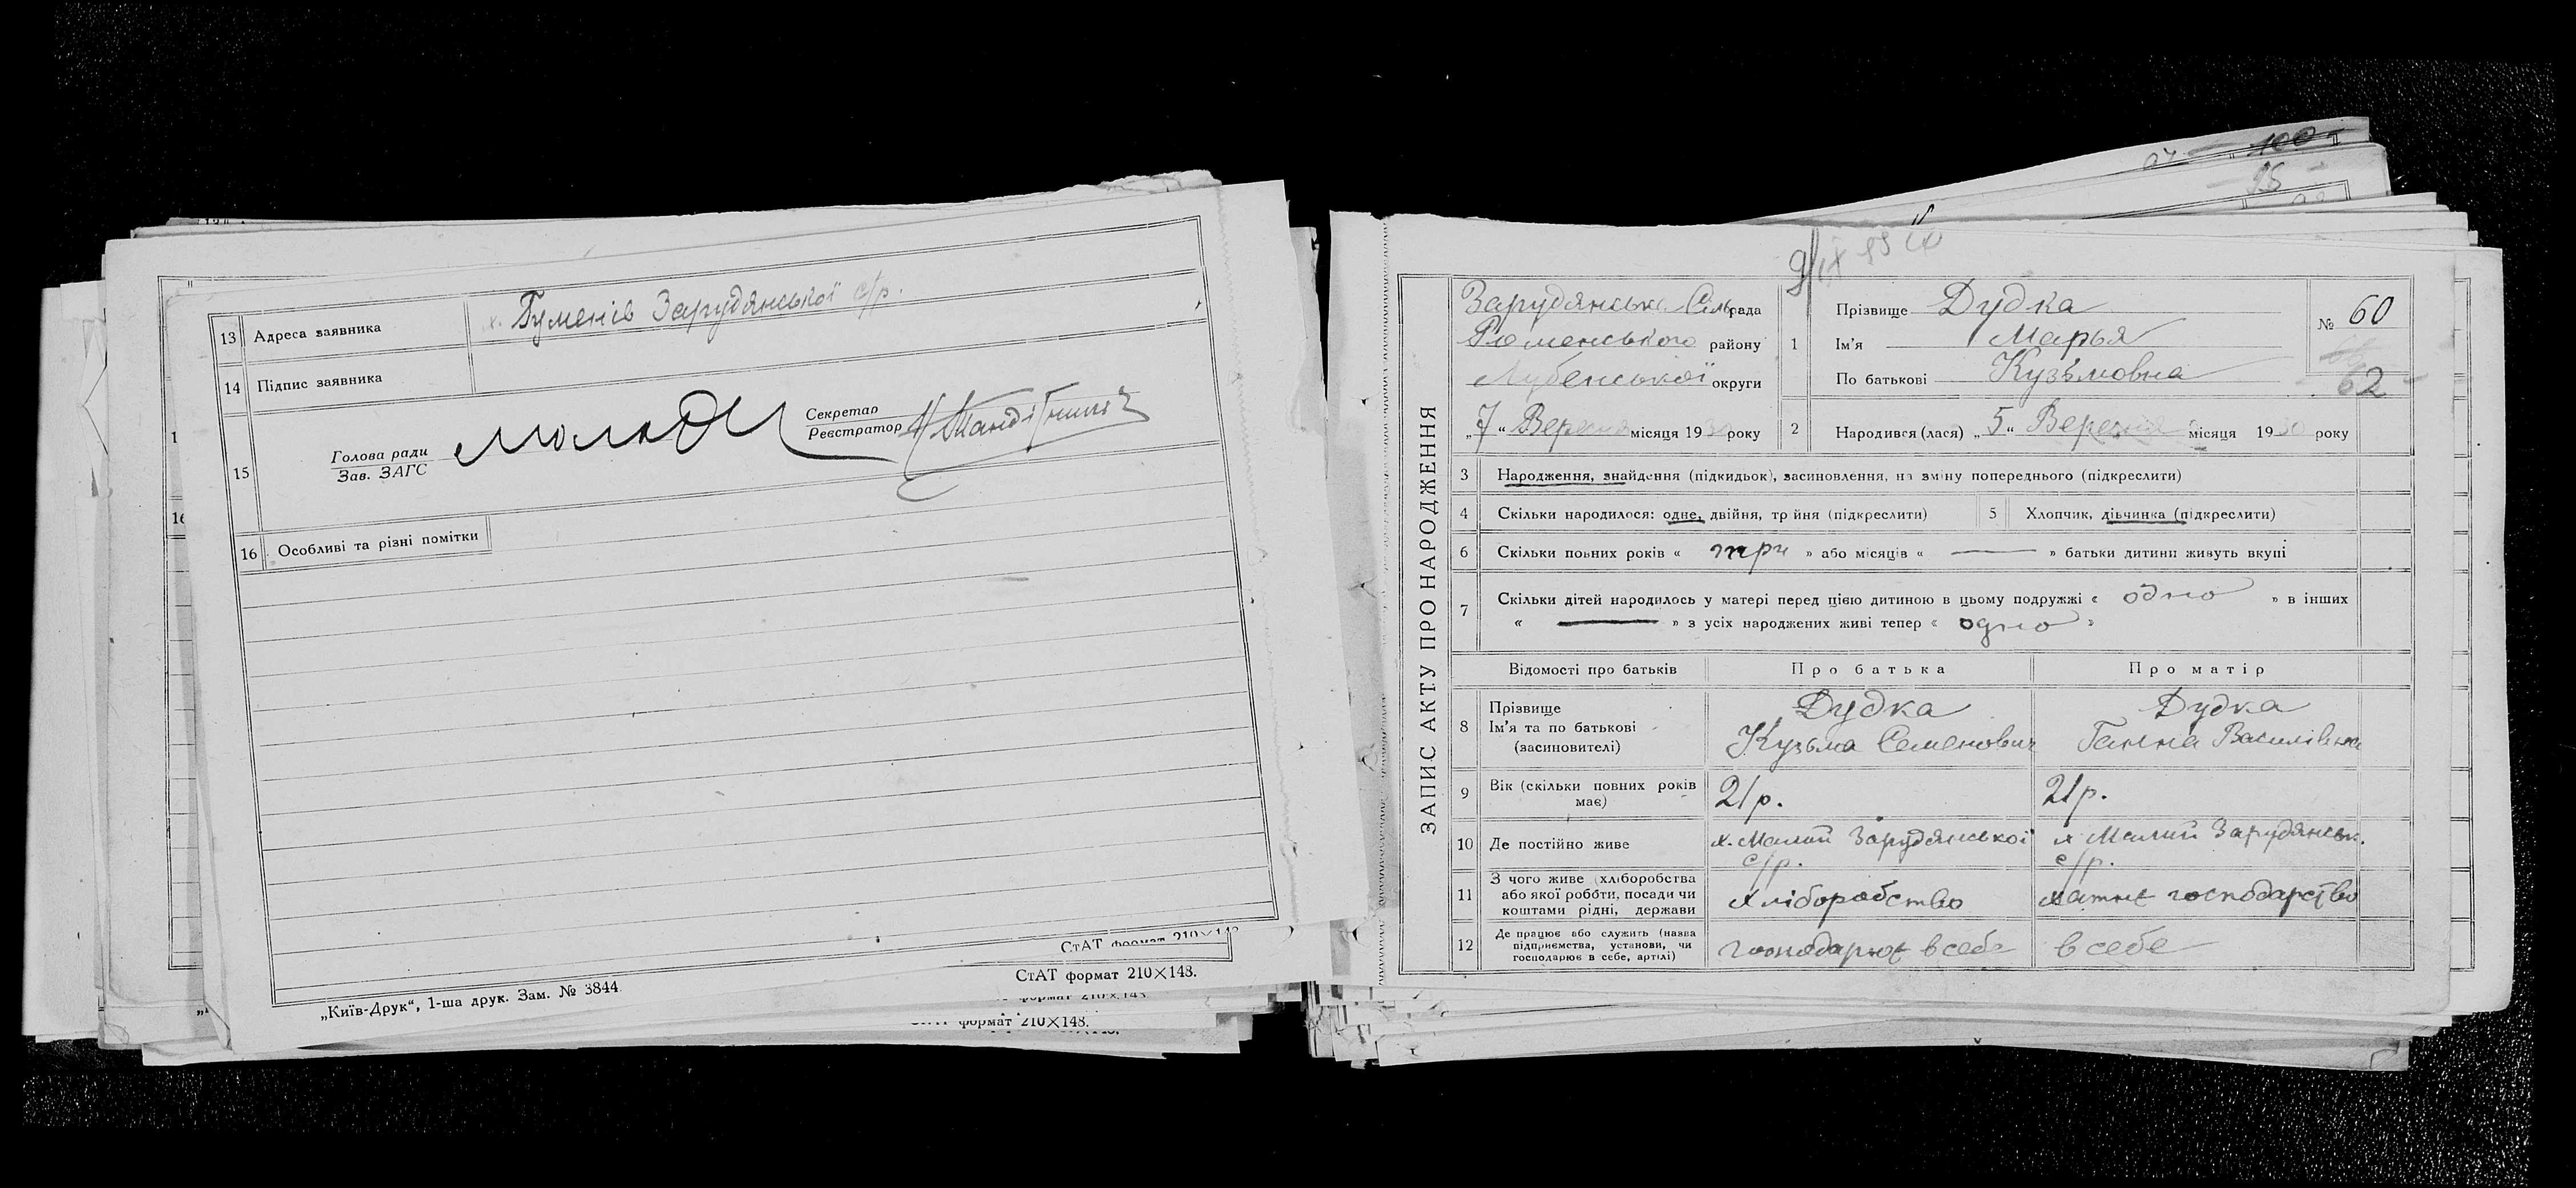 13 Адреса заявника х. Гуменів Зарудянської с/р.
14 Підпис заявника
15 Голова ради
Зав. ЗАГС
Секретар
Реєстратор
16 Особливі та різні помітки
СтАТ формат 210×148.
„Київ-Друк“, 1-ша друк. Зам. № 3844
СтАТ формат 210×148.
формат 210×148.
формат 210×148.
100
95
ЗАПИС АКТУ ПРО НАРОДЖЕННЯ
Зарудянська Сільрада
Роменського району
Лубенської округи
„7“ Вересня місяця 1930 року
1 Прізвище Дудка
Ім'я Марья
По батькові Кузьмовна
№ 60
62
2 Народився (лася) „5“ Вересня місяця 1930 року
3 Народження, знайдення (підкидьок), засиновлення, на зміну попереднього (підкреслити)
4 Скільки народилося: одне, двійня, трійня (підкреслити) 5 Хлопчик, дівчинка (підкреслити)
6 Скільки повних років « три » або місяців « — » батьки дитини живуть вкупі
7 Скільки дітей народилось у матері перед цією дитиною в цьому подружжі « одно » в інших
« — » з усіх народжених живі тепер « одно »
Відомості про батьків Про батька Про матір
8 Прізвище
Ім'я та по батькові
(засиновителі)
Дудка
Кузьма Семенович
Дудка
Ганна Василівна
9 Вік (скільки повних років
має)
21 р. 21 р.
10 Де постійно живе
х. Малий Зарудянської
с/р.
х Малий Зарудянськ.
с/р.
11 З чого живе (хліборобства
або якої роботи, посади чи
коштами рідні, держави
хліборобство
хатнє господарство
12 Де працює або служить (назва
підприємства, установи, чи
господарює в себе, артілі)
господарює в себе
в себе